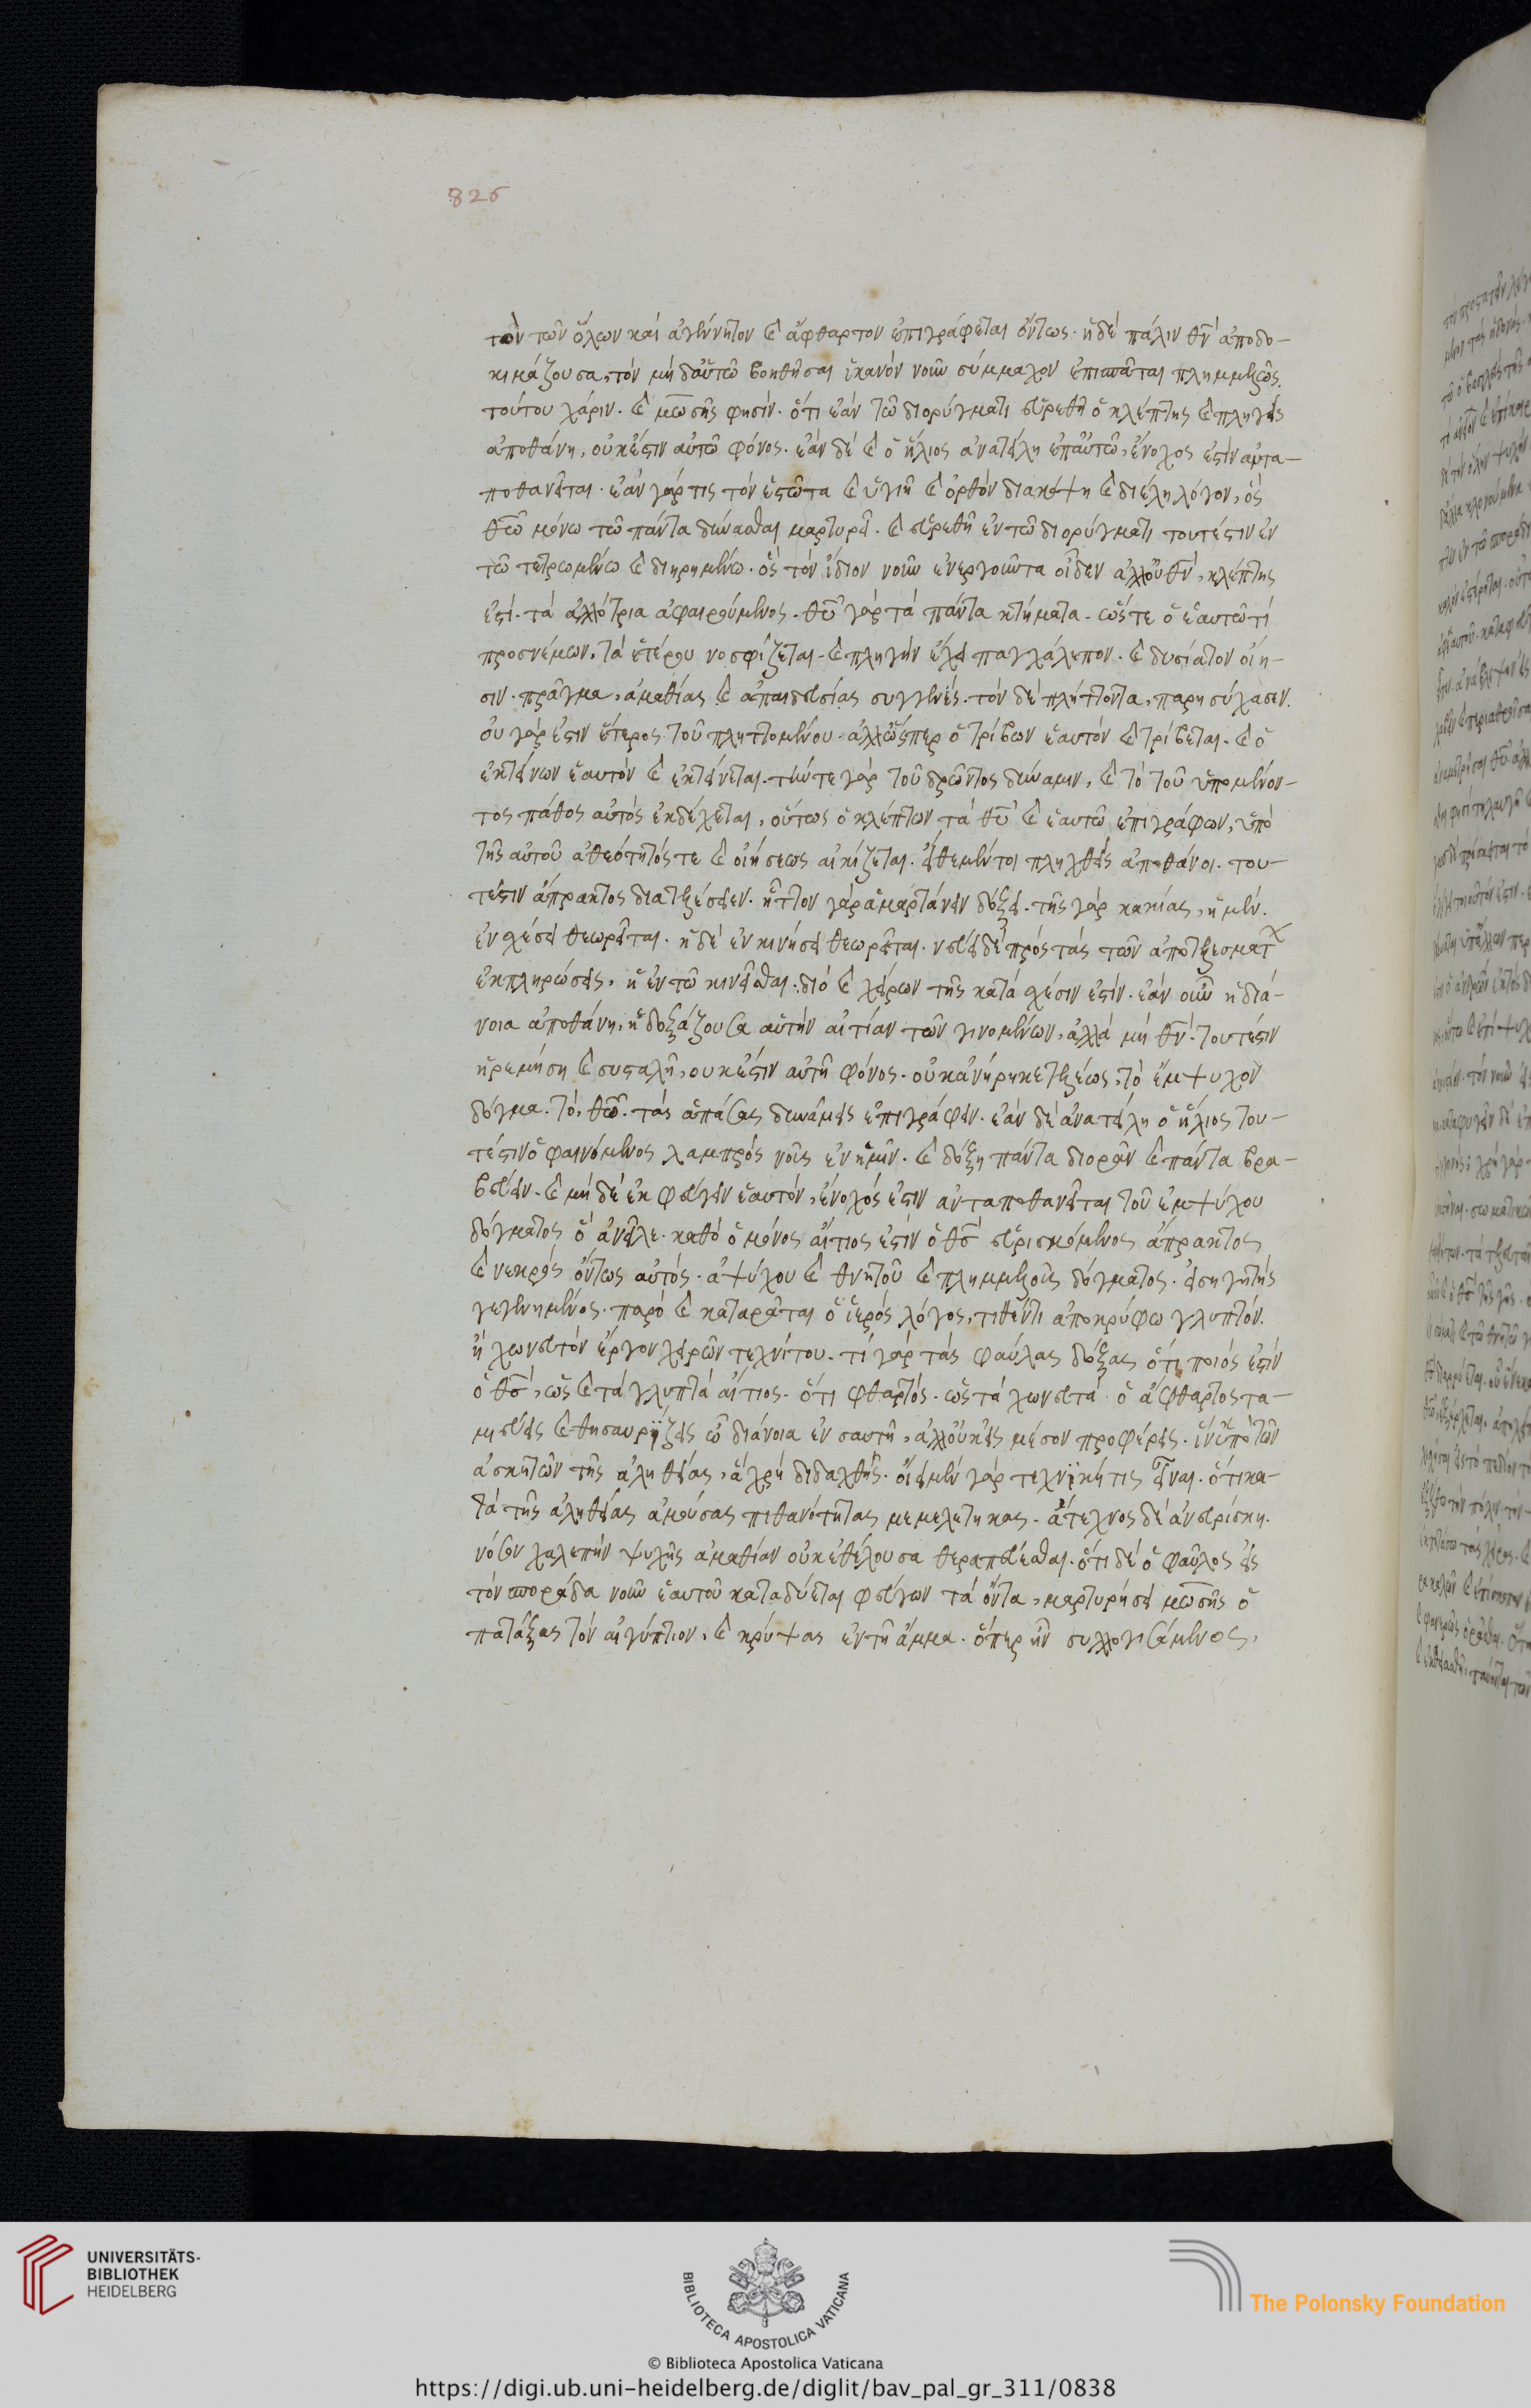 826
τὸν τῶν ὅλων καὶ ἀγέννητον καὶ ἄφθαρτον ἐπιγράφεται ὄντως. ἡ δὲ πάλιν θν̅ ἀποδο-
κιμάζουσα, τὸν μὴ δαὑτῶ βοηθῆσαι ἱκανὸν νοῦν σύμμαχον ἐπισπᾶται πλημμελῶς.
τούτου χάριν. καὶ μωσῆς φησίν. ὅτι ἐὰν τῶ διορύγματι εὑρεθῆ ὁ κλέπτης καὶ πληγεὶς
ἀποθάνη, οὐκ ἔστιν αὐτῶ φόνος. ἐὰν δὲ καὶ ὁ ἥλιος ἀνατείλη ἐπ αὐτῶ, ἔνοχος ἐστὶν ἀντα-
ποθανεῖται. ἐὰν γάρ τις τὸν ἑστῶτα καὶ ὑγιῆ καὶ ὀρθὸν διακόψη καὶ διέλη λόγον, ὃς
θω̅ μόνω τῶ πάντα δύνασθαι μαρτυρεῖ. καὶ εὑρεθῆ ἐν τῶ διορύγματι τουτέστιν ἐν
τῶ τετρωμένω καὶ διηρημένω. ὃς τὸν ἴδιον νοῦν ἐνεργοῦντα οἶδεν ἀλλ οὐ θν̅, κλέπτης
ἐστί. τὰ ἀλλότρια ἀφαιρούμενος. θυ̅ γὰρ τὰ πάντα κτήματα. ὥστε ὁ ἑαυτῶ τὶ
προσνέμων, τὰ ἑτέρου νοσφίζεται. καὶ πληγὴν ἔχει παγχάλεπον. καὶ δυσίατον οἴη-
σιν. πρᾶγμα, ἀμαθίας καὶ ἀπαιδευσίας συγγενές. τὸν δὲ πλήττοντα, παρησύχασεν.
οὐ γάρ ἐστιν ἕτερος τοῦ πληττομένου. ἀλλ ὥσπερ ὁ τρίβων ἑαυτὸν καὶ τρίβεται. καὶ ὁ
ἐκτείνων ἑαυτὸν καὶ ἐκτείνεται. τήν τε γὰρ τοῦ δρῶντος δύναμιν, καὶ τὸ τοῦ ὑπομένον-
τος πάθος αὐτὸς ἐκδέχεται, οὕτως ὁ κλέπτων τὰ θυ̅ καὶ ἑαυτῶ ἐπιγράφων, ὑπὸ
τῆς αὐτοῦ ἀθεότητός τε καὶ οἰήσεως αἰκίζεται. εἴθε μέντοι πληχθεὶς ἀποθάνοι. του-
τέστιν ἄπρακτος διατελέσειεν. ἧττον γὰρ ἁμαρτάνειν δόξει. τῆς γὰρ κακίας, ἡ μὲν.
ἐν σχέσει θεωρεῖται. ἡ δὲ ἐν κινήσει θεωρεῖται. νεύει δὲ πρὸς τὰς τῶν ἀποτελεσμάτ
ἐκπληρώσεις, ἡ ἐν τῶ κινεῖσθαι. διὸ καὶ χείρων τῆς κατὰ σχέσιν ἐστίν. ἐὰν οὖν ἡ διά-
νοια ἀποθάνη, ἡ δοξάζουσα αὑτὴν αἰτίαν τῶν γινομένων, ἀλλὰ μὴ θν̅. τουτέστιν
ἠρεμήση καὶ συσταλῆ, οὐκ ἔστιν αὐτῆ φόνος. οὐκ ἀνήρηκε τελέως, τὸ ἔμψυχον
δόγμα. τὸ, θω̅. τὰς ἁπάσας δυνάμεις ἐπιγράφειν. ἐὰν δὲ ἀνατείλη ὁ ἥλιος του-
τέστιν ὁ φαινόμενος λαμπρὸς νοῦς ἐν ἡμῖν. καὶ δόξη πάντα διορᾶν καὶ πάντα βρα-
βεύειν. καὶ μὴ δὲ ἐκφεύγειν ἑαυτόν, ἔνοχός ἐστιν ἀνταποθανεῖται τοῦ ἐμψύχου
δόγματος ὃ ἀνεῖλε. καθὸ ὁ μόνος αἴτιος ἐστὶν ὁ θς̅ εὑρισκόμενος ἄπρακτος
καὶ νεκρὸς ὄντως αὐτός. ἀψύχου καὶ θνητοῦ καὶ πλημμελοῦς δόγματος. εἰσηγητὴς
γεγενημένος. παρὸ καὶ καταρᾶται ὁ ἱερὸς λόγος, τιθέντι ἀποκρύφω γλυπτόν.
ἢ χωνευτὸν ἔργον χειρῶν τεχνίτου. τί γὰρ τὰς φαύλας δόξας ὅτι ποιός ἐστὶν
ὁ θς̅, ὡς καὶ τὰ γλυπτὰ αἴτιος. ὅτι φθαρτός. ὡς τὰ χωνευτὰ. ὁ ἄφθαρτος τα-
μιεύεις καὶ θησαυρίζεις ὦ διάνοια ἐν σαυτῆ, ἀλλ οὐκ εἰς μέσον προφέρεις. ἵν ὑπὸ τῶν
ἀσκητῶν τῆς ἀληθείας, ἃ χρὴ διδαχθῆς. οἴει μὲν γὰρ τεχνικὴ τις εἶναι. ὅτι κα-
τὰ τῆς ἀληθείας ἀμούσας πιθανότητας μεμελέτηκας. ἄτεχνος δὲ ἀνευρίσκη.
νόσον χαλεπὴν ψυχῆς ἀμαθίαν οὐκ ἐθέλουσα θεραπεύεσθαι. ὅτι δὲ ὁ φαῦλος εἰς
τὸν σποράδα νοῦν ἑαυτοῦ καταδύεται φεύγων τὰ ὄντα, μαρτυρήσει μωσῆς ὁ
πατάξας τὸν αἰγύπτιον, καὶ κρύψας ἐν τῆ ἄμμω. ὅπερ ἦν συλλογισάμενος,
UNIVERSITÄTS-
BIBLIOTHEK
HEIDELBERG
BIBLIOTECA APOSTOLICA VATICANA
The Polonsky Foundation
© Biblioteca Apostolica Vaticana
https://digi.ub.uni-heidelberg.de/diglit/bav_pal_gr_311/0838